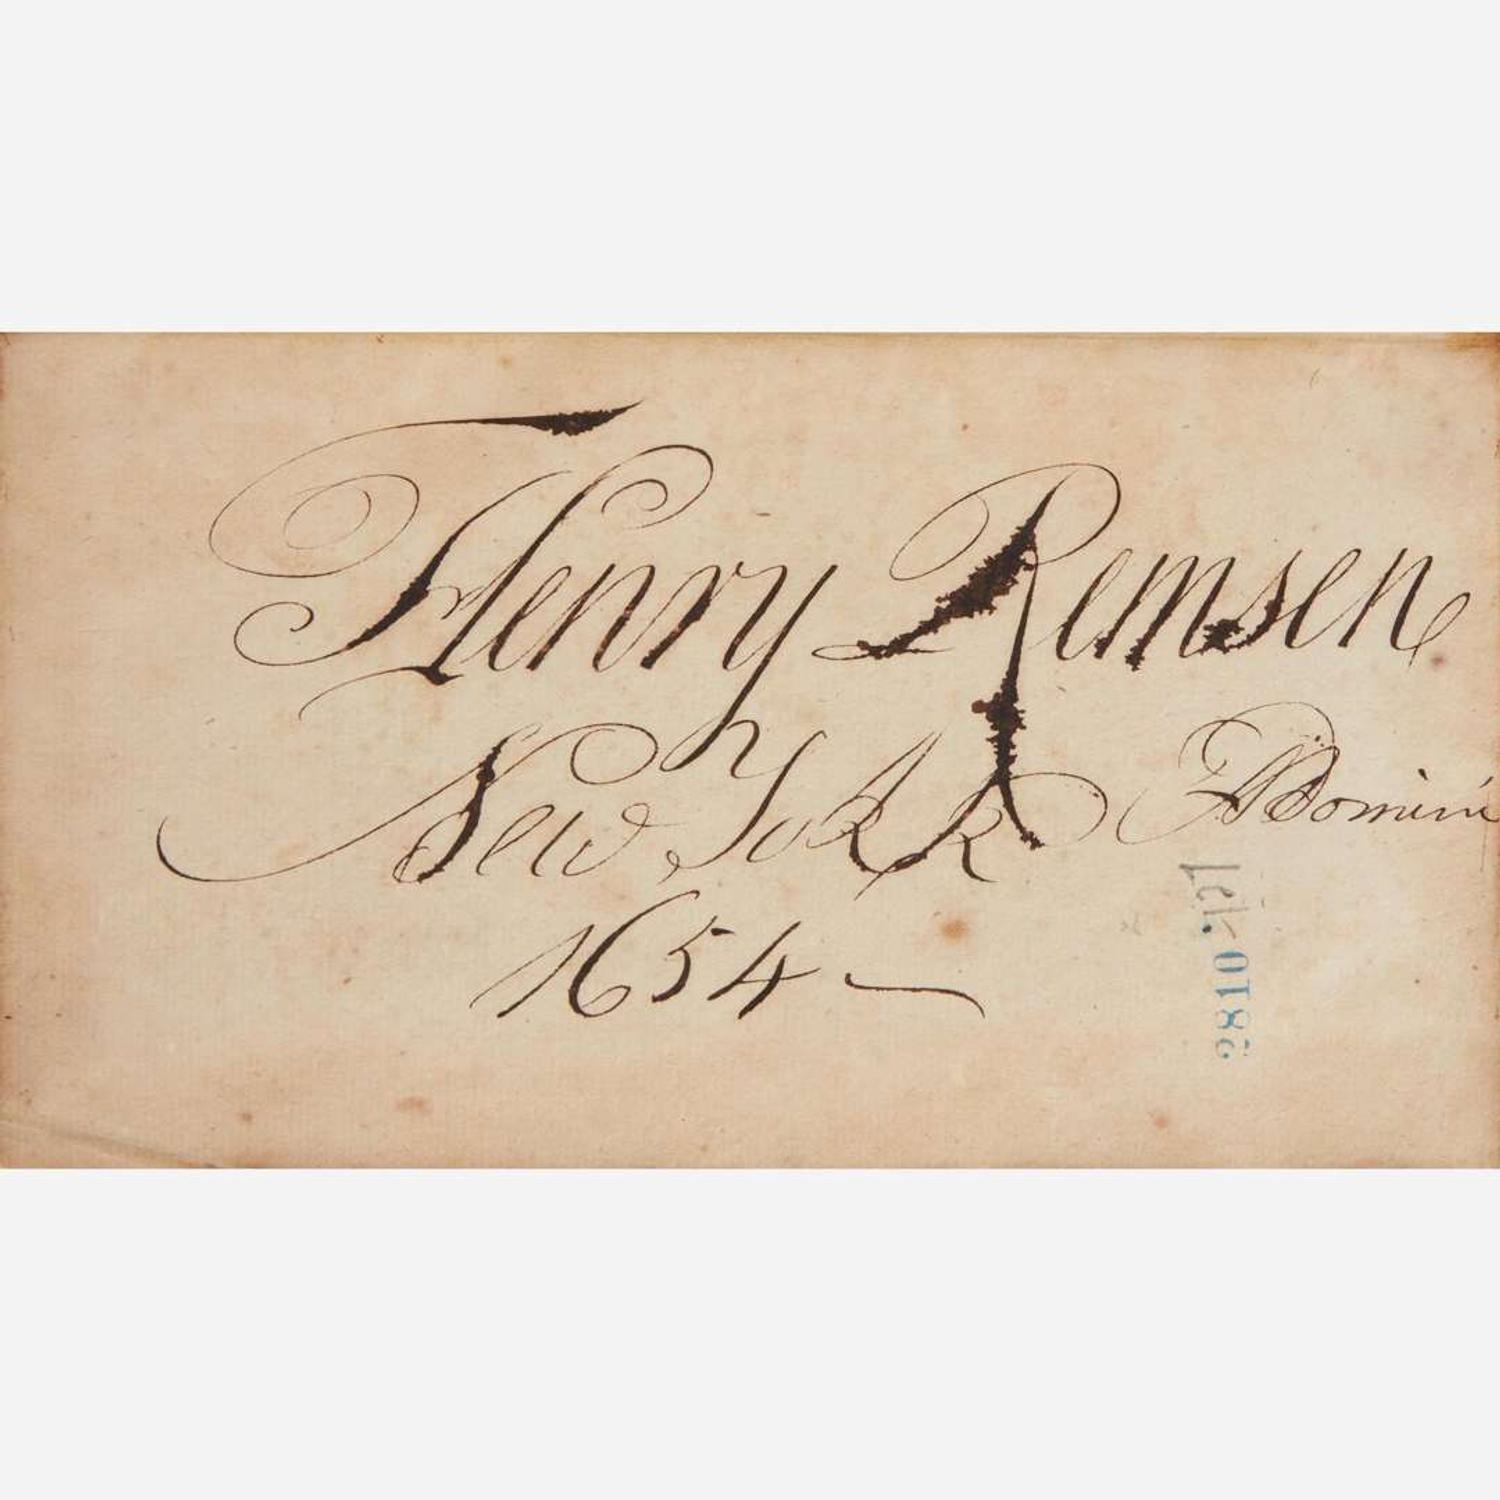 Henry Remsen
New York Ao Domini
1654 —
2810